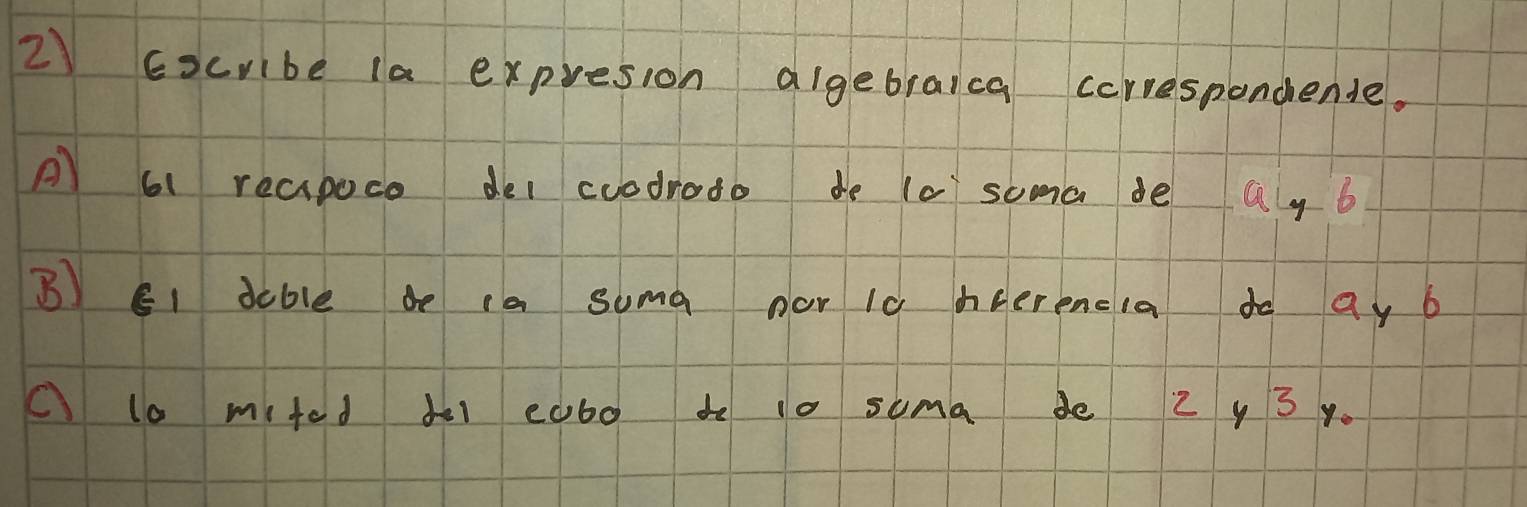 2) Escribe la expresion algebraica correspondiente.
A) El recipoco del cuadrado de la suma de a y b
B) El doble de la suma por la diferencia de a y b
C) la mitad del cubo de la suma de 2 y 3 y.